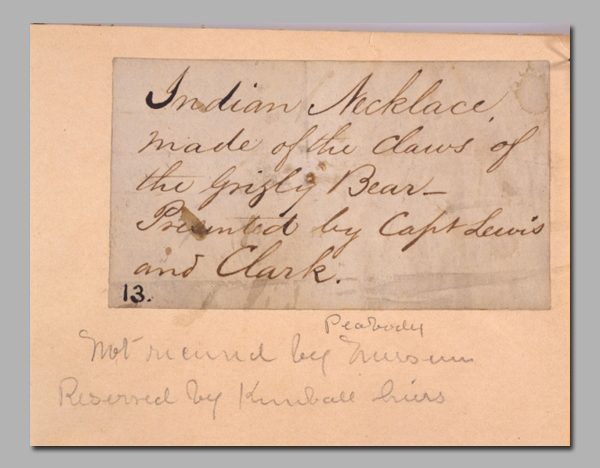 Indian Necklace,
made of the claws of
the Grizly Bear—
Presented by Capt Lewis
and Clark.
13.
Peabody
Not received by Museum
Reserved by Kimball heirs